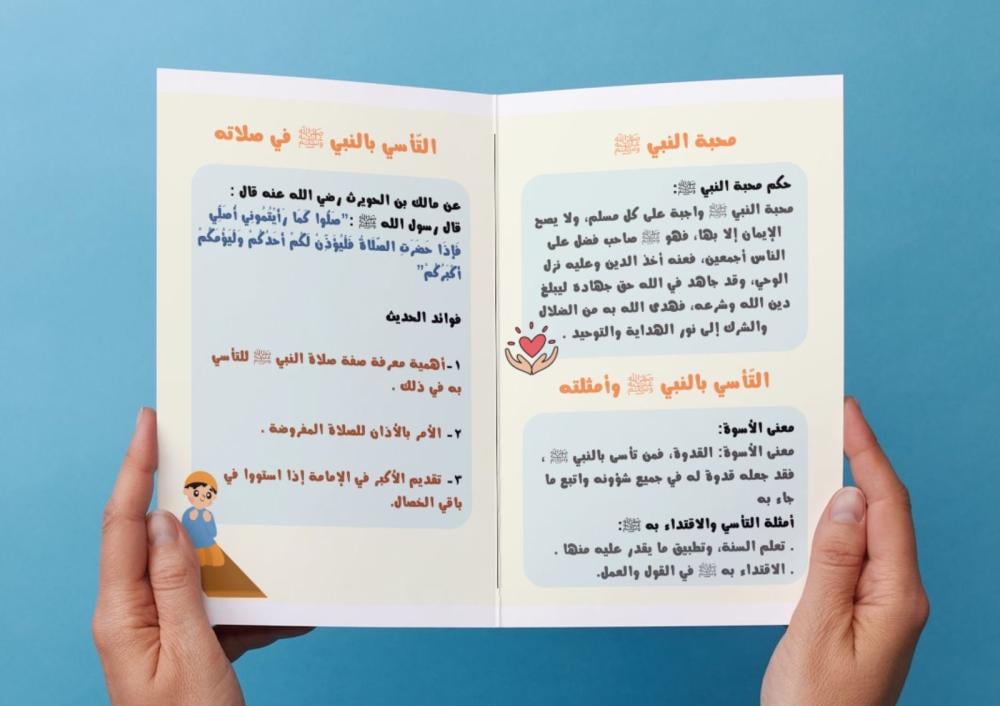 محبة النبي ﷺ
حكم محبة النبي ﷺ:
محبة النبي ﷺ واجبة على كل مسلم، ولا يصح
الإيمان إلا بها، فهو ﷺ صاحب فضل على
الناس أجمعين، فعنه أخذ الدين وعليه نزل
الوحي، وقد جاهد في الله حق جهاده ليبلغ
دين الله وشرعه، فهدى الله به من الضلال
والشرك إلى نور الهداية والتوحيد .
التَأسي بالنبي ﷺ وأمثلته
معنى الأسوة:
معنى الأسوة: القدوة، فمن تأسى بالنبي ﷺ ،
فقد جعله قدوة له في جميع شؤونه واتبع ما
جاء به
أمثلة التأسي والاقتداء به ﷺ:
. تعلم السنة، وتطبيق ما يقدر عليه منها .
. الاقتداء به ﷺ في القول والعمل.
التَأسي بالنبي ﷺ في صلاته
عن مالك بن الحويرث رضي الله عنه قال :
قال رسول الله ﷺ :"صَلُّوا كَمَا رَأَيْتُمُونِي أُصَلِّي
فَإِذَا حَضَرَتِ الصَّلَاةُ فَلْيُؤَذِّنْ لَكُمْ أَحَدُكُمْ وَلْيَؤُمَّكُمْ
أَكْبَرُكُمْ"
فوائد الحديث
١-أهمية معرفة صفة صلاة النبي ﷺ للتأسي
به في ذلك .
٢- الأمر بالأذان للصلاة المفروضة .
٣- تقديم الأكبر في الإمامة إذا استووا في
باقي الخصال.